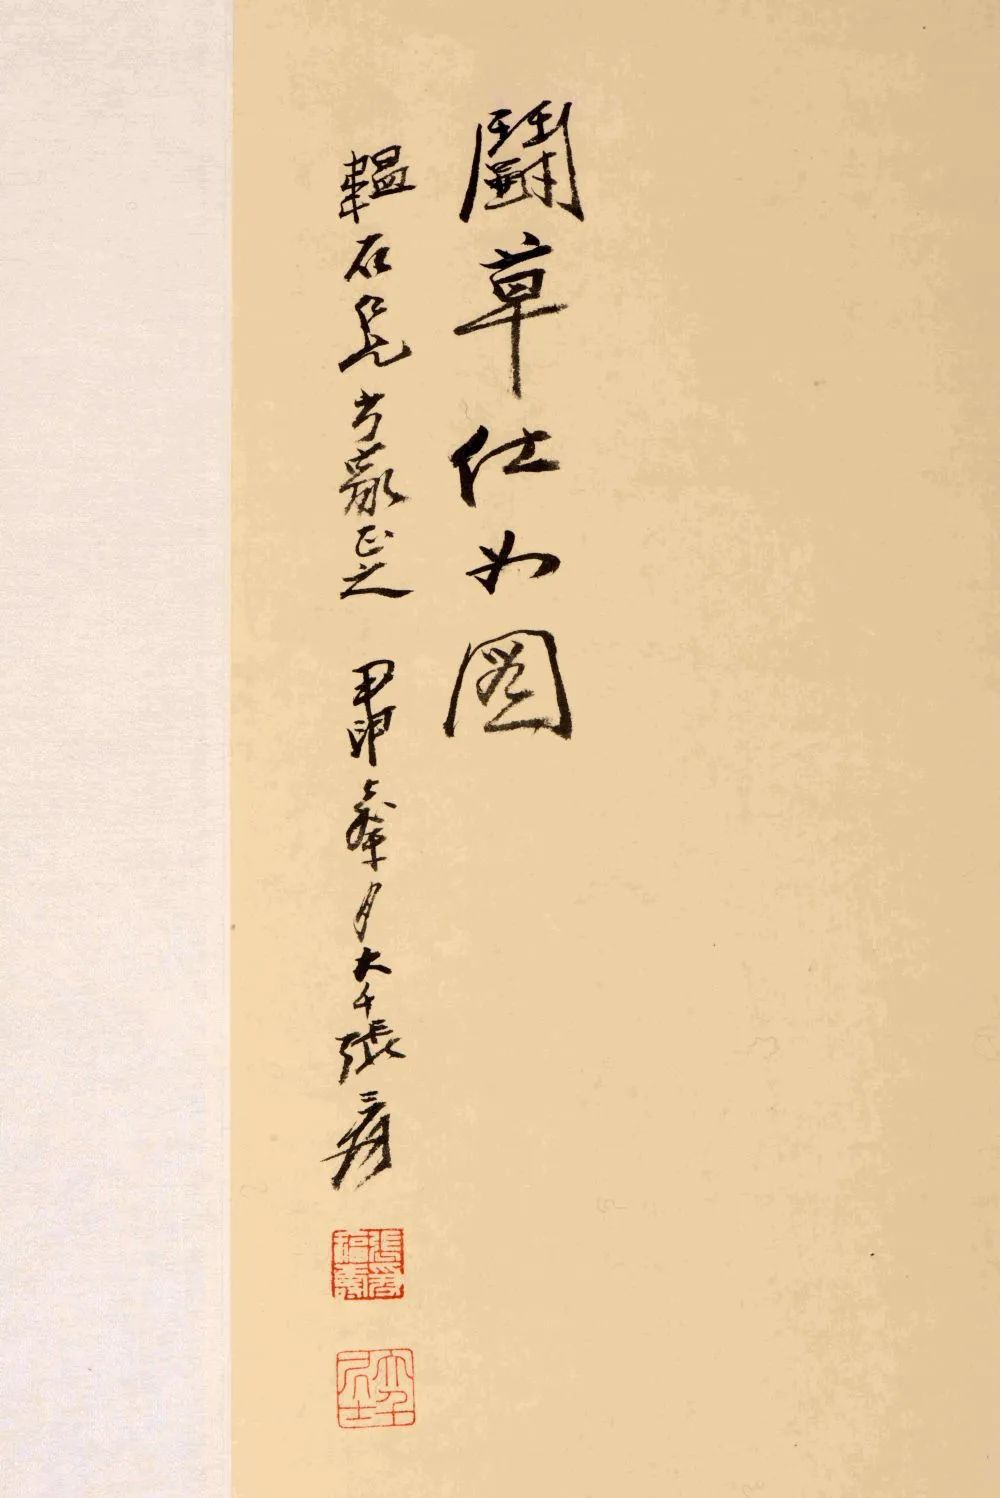 鬪草仕女圖
韞石仁兄方家正之 甲申嘉平月大千張爰
張爰福壽
大千居士